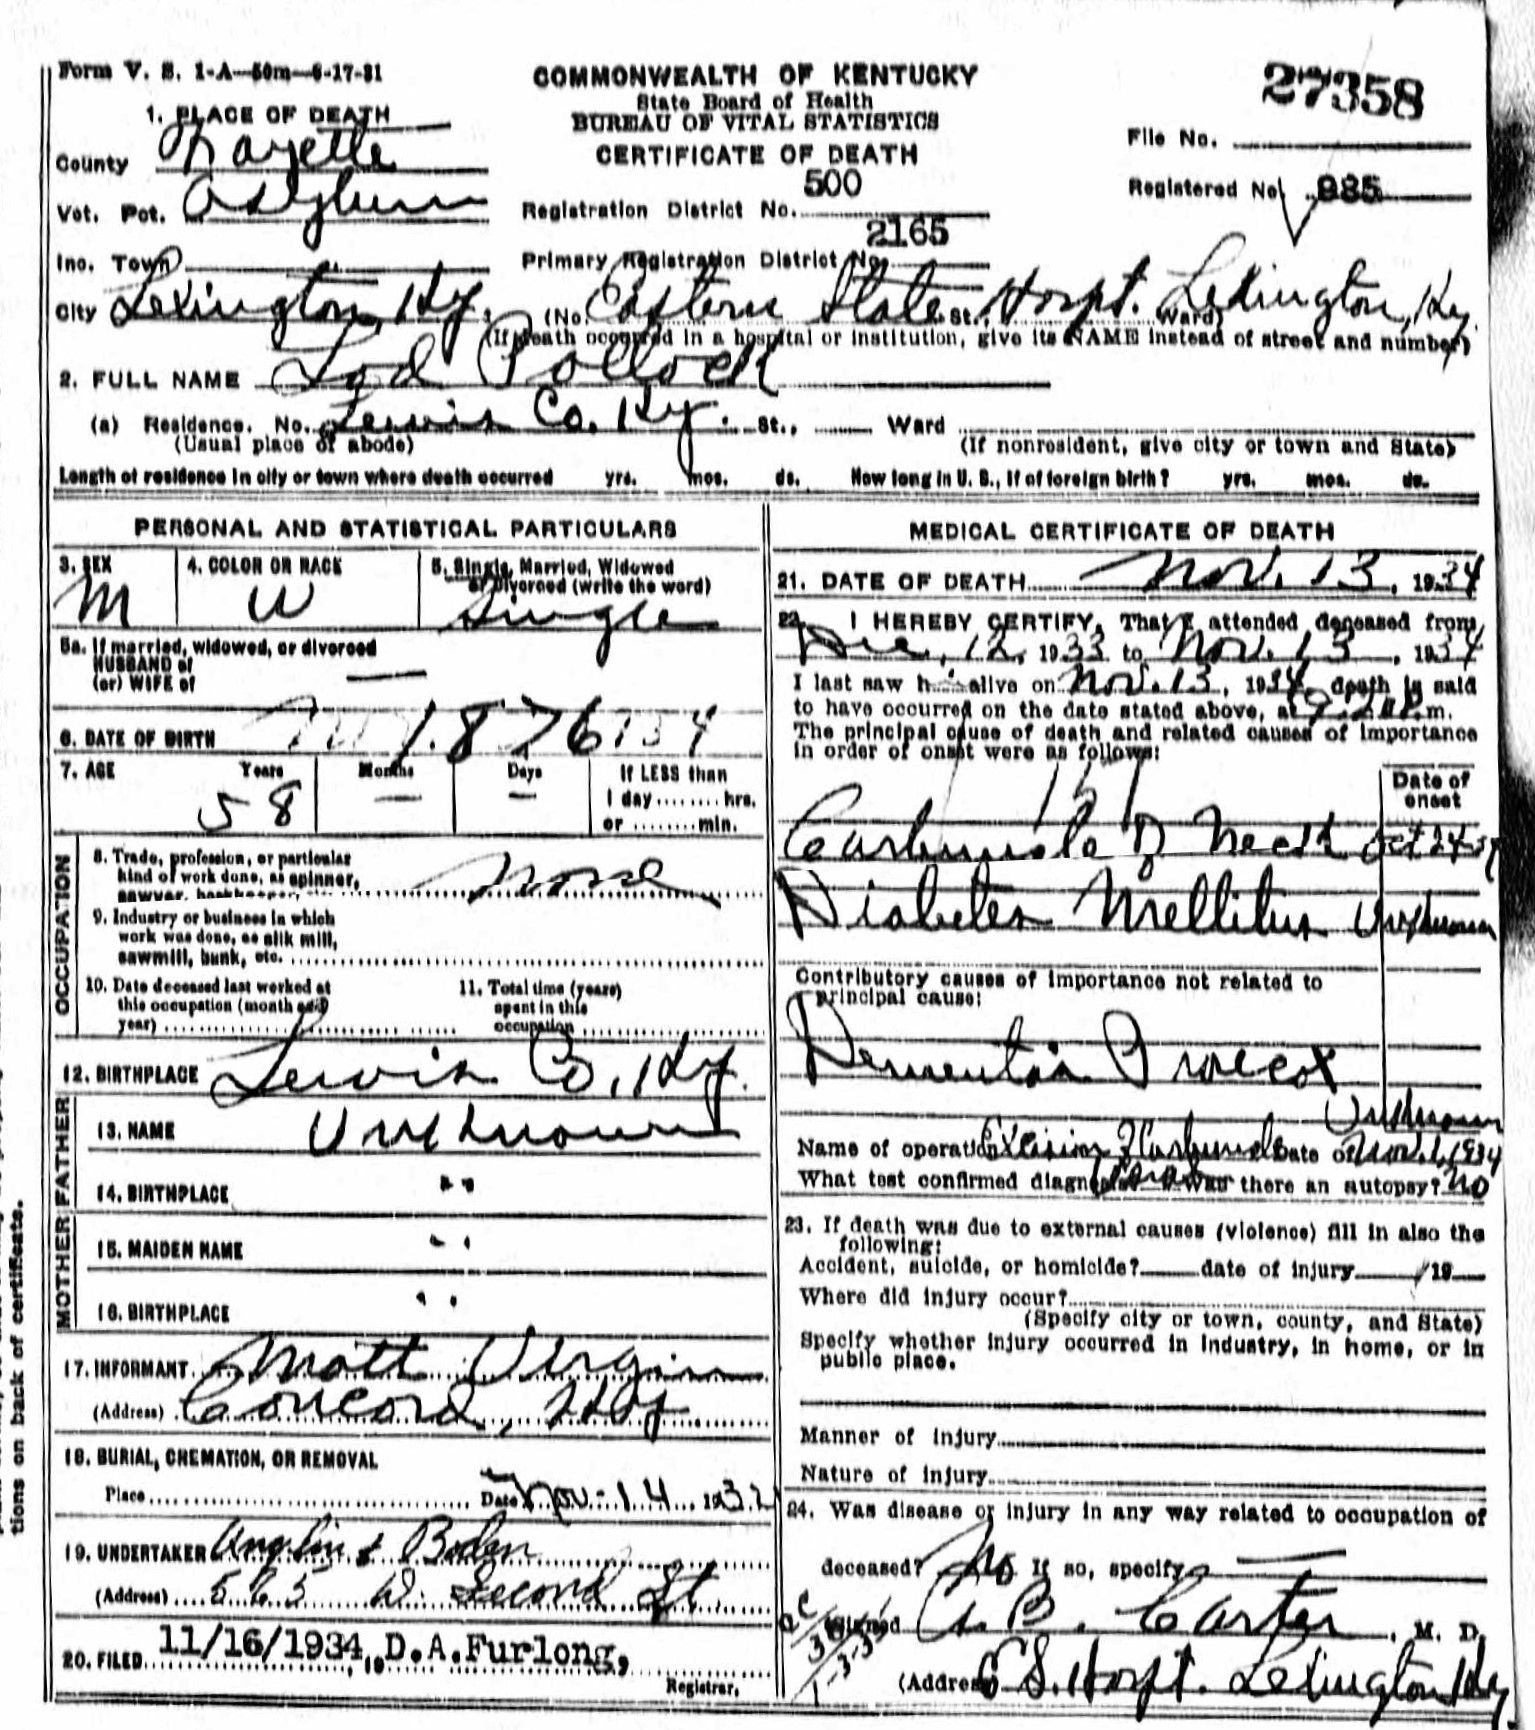 Form V. S. 1-A—50m—6-17-31
COMMONWEALTH OF KENTUCKY
State Board of Health
BUREAU OF VITAL STATISTICS
CERTIFICATE OF DEATH
27358
File No.
Registered No. 985
1. PLACE OF DEATH
County Fayette
Vot. Pct. Asylum
Inc. Town
City Lexington, Ky.
Registration District No. 500
Primary Registration District No. 2165
(No. Eastern State St., Hospt. Lexington, Ky. Ward)
(If death occurred in a hospital or institution, give its NAME instead of street and number)
2. FULL NAME Lod Pollock
(a) Residence. No. Lewis Co. Ky. St., Ward
(Usual place of abode)
(If nonresident, give city or town and State)
Length of residence in city or town where death occurred yrs. mos. ds. How long in U. S., if of foreign birth? yrs. mos. ds.
PERSONAL AND STATISTICAL PARTICULARS
3. SEX M
4. COLOR OR RACE W
5. Single, Married, Widowed
or Divorced (write the word)
Single
5a. If married, widowed, or divorced
HUSBAND of
(or) WIFE of —
6. DATE OF BIRTH 1876
7. AGE Years Months Days If LESS than
58 — — 1 day ........ hrs.
or ........ min.
OCCUPATION
8. Trade, profession, or particular
kind of work done, as spinner,
sawyer, bookkeeper, etc. None
9. Industry or business in which
work was done, as silk mill,
sawmill, bank, etc.
10. Date deceased last worked at
this occupation (month and
year)
11. Total time (years)
spent in this
occupation
12. BIRTHPLACE Lewis Co. Ky.
FATHER
13. NAME Unknown
14. BIRTHPLACE " "
MOTHER
15. MAIDEN NAME " "
16. BIRTHPLACE " "
17. INFORMANT Matt Virgin
(Address) Concord, Ky
18. BURIAL, CREMATION, OR REMOVAL
Place Date Nov. 14 1932
19. UNDERTAKER Anglin & Boden
(Address) 565 W. Second St.
20. FILED 11/16/1934, D.A.Furlong,
Registrar.
MEDICAL CERTIFICATE OF DEATH
21. DATE OF DEATH Nov. 13, 1934
22. I HEREBY CERTIFY, That I attended deceased from
Dec. 12, 1933 to Nov. 13, 1934
I last saw h alive on Nov. 13, 1934, death is said
to have occurred on the date stated above, at m.
The principal cause of death and related causes of importance
in order of onset were as follows:
Date of
onset
Carbuncle of Neck Oct 24-34
Diabetes Mellitus Unknown
Contributory causes of importance not related to
principal cause:
Dementia Praecox
Unknown
Name of operation Excision of Carbuncle Date of Nov. 1, 1934
What test confirmed diagnosis? Was there an autopsy? No
23. If death was due to external causes (violence) fill in also the
following:
Accident, suicide, or homicide? date of injury 19
Where did injury occur?
(Specify city or town, county, and State)
Specify whether injury occurred in industry, in home, or in
public place.
Manner of injury
Nature of injury
24. Was disease or injury in any way related to occupation of
deceased? No If so, specify —
Signed A. B. Carter, M. D.
(Address) E. S. Hospt. Lexington Ky
tions on back of certificate.